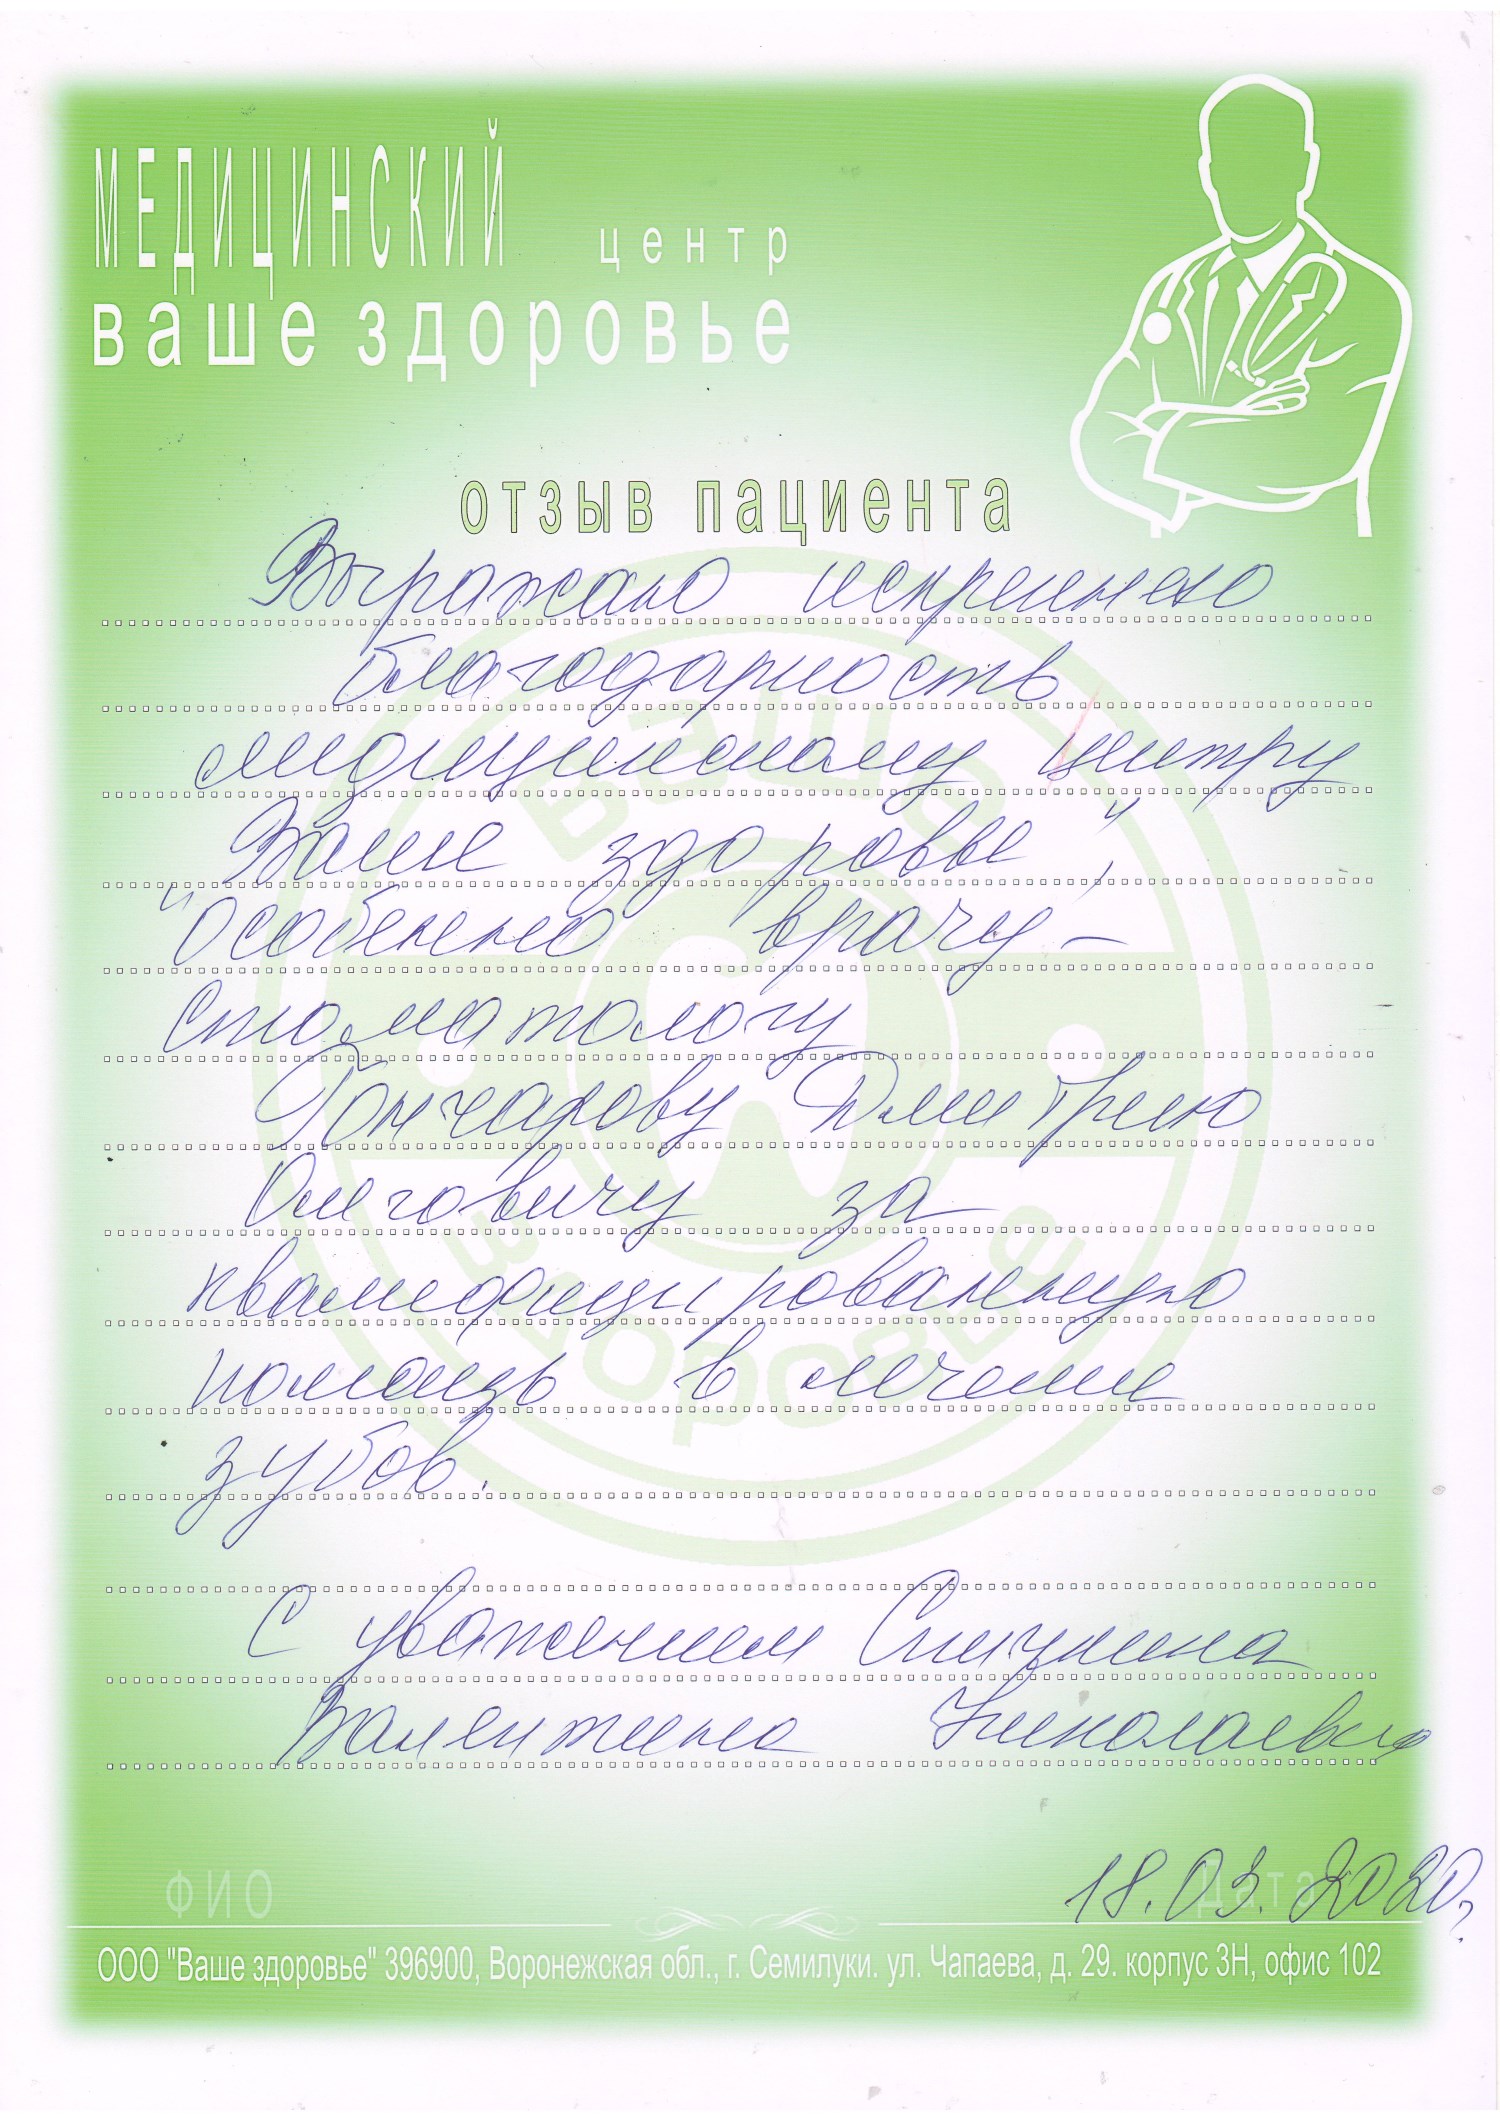 МЕДИЦИНСКИЙ центр
ваше здоровье
отзыв пациента
Выражаю искреннею
благодарность
медицинскому центру
Ваше здоровье",
"особенно врачу-
стоматологу
Гончарову Дмитрию
Олеговичу за
квалифицированную
помощь в лечение
зубов.
С уважением
Валентина Николаевна
18.03.2020г.
ФИО Дата
ООО "Ваше здоровье" 396900, Воронежская обл., г. Семилуки. ул. Чапаева, д. 29. корпус 3Н, офис 102
ВАШЕ
ЗДОРОВЬЕ